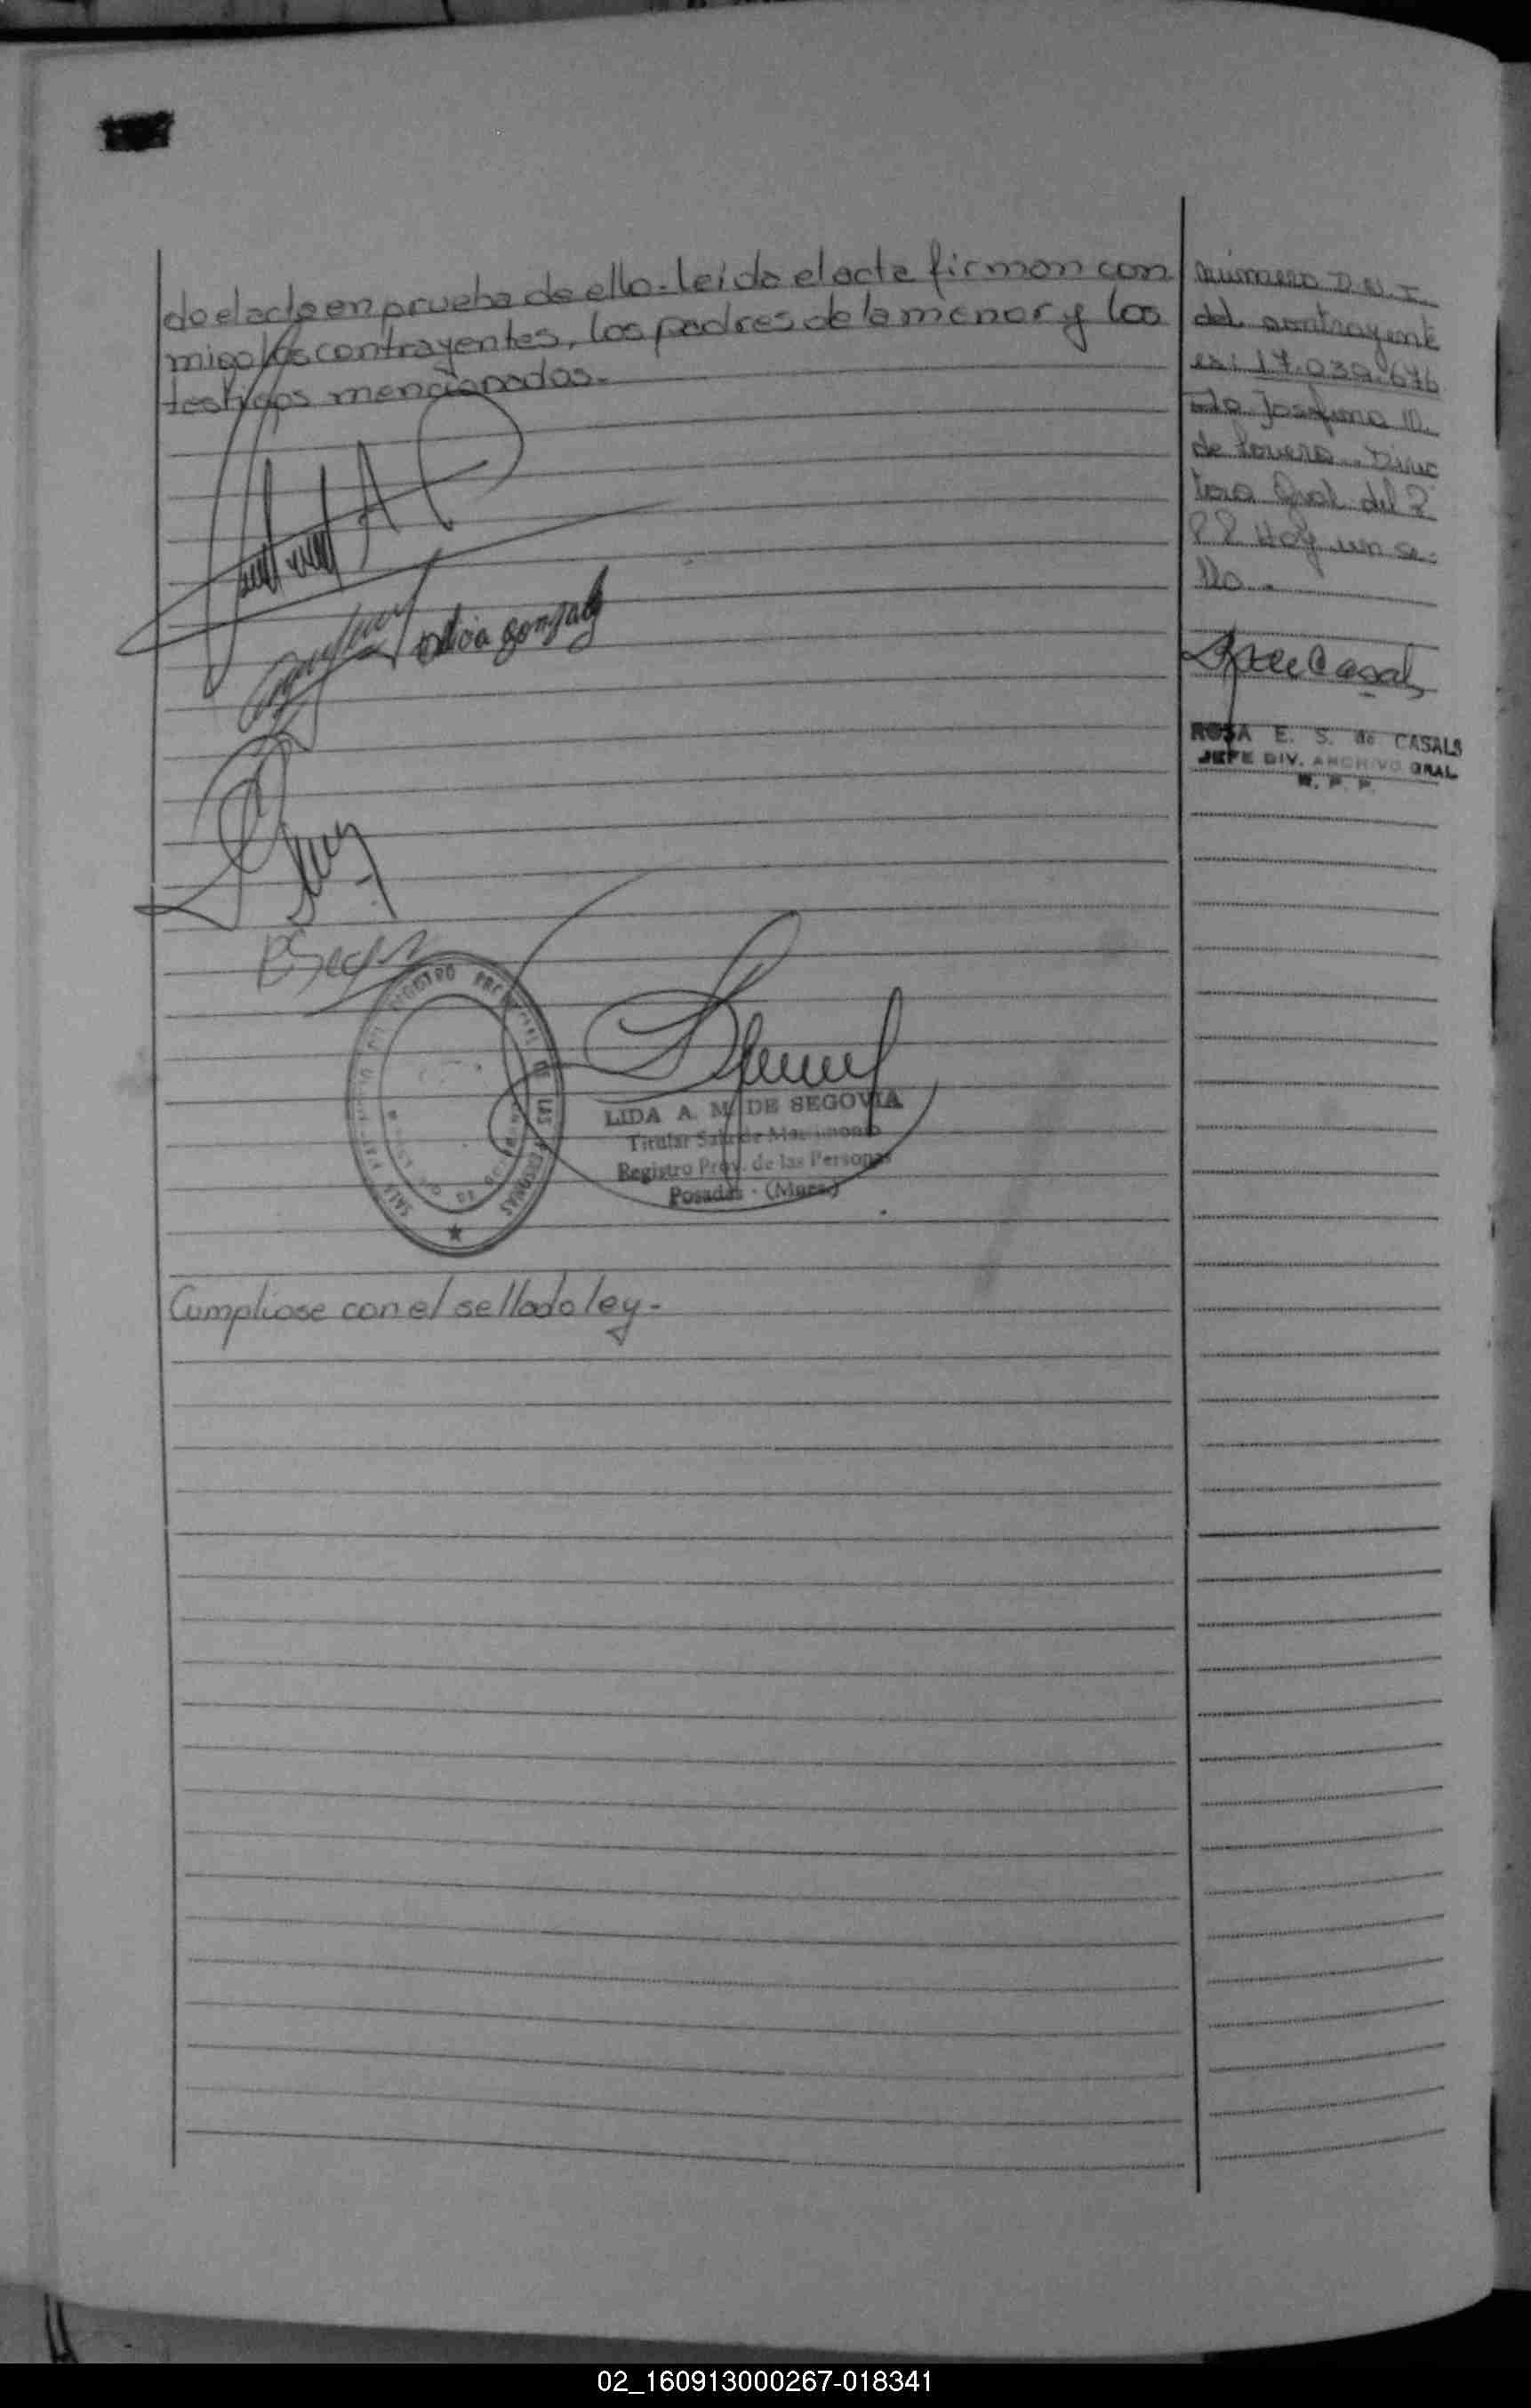 do el acto en prueba de ello - Leida el acta firman con
migo los contrayentes, los padres de la menor y los
testigos mencionados.-
Alicia Gonzalez
LIDA A. M. DE SEGOVIA
Titular Sala de Matrimonio
Registro Prov. de las Personas
Posadas - (Mnes.)
REGISTRO PROVINCIAL DE LAS PERSONAS
Cumpliose con el sellado ley -
número D.N.I.
del contrayente
es: 17.039.676
Fdo Josefina M.
de Lovera. Direc
tora Gral del R
P P Hay un se-
llo.-
ROSA E. S. de CASALS
JEFE DIV. ARCHIVO GRAL
R. P. P.
02_160913000267-018341